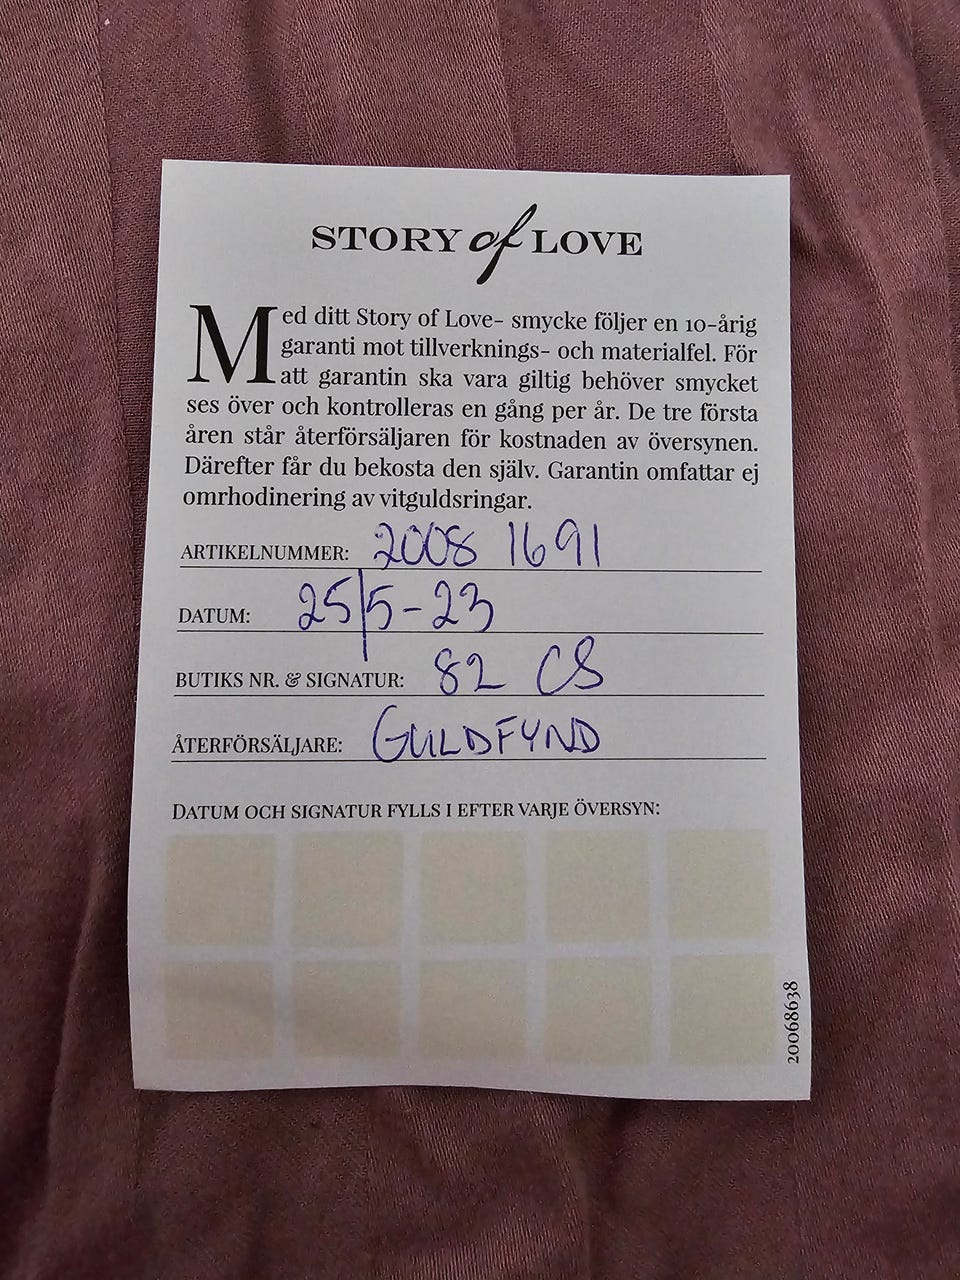 STORY of LOVE
Med ditt Story of Love- smycke följer en 10-årig
garanti mot tillverknings- och materialfel. För
att garantin ska vara giltig behöver smycket
ses över och kontrolleras en gång per år. De tre första
åren står återförsäljaren för kostnaden av översynen.
Därefter får du bekosta den själv. Garantin omfattar ej
omrhodinering av vitguldsringar.
ARTIKELNUMMER: 2008 1691
DATUM: 25/5-23
BUTIKS NR. & SIGNATUR: 82 CS
ÅTERFÖRSÄLJARE: GULDFYND
DATUM OCH SIGNATUR FYLLS I EFTER VARJE ÖVERSYN:
20068638